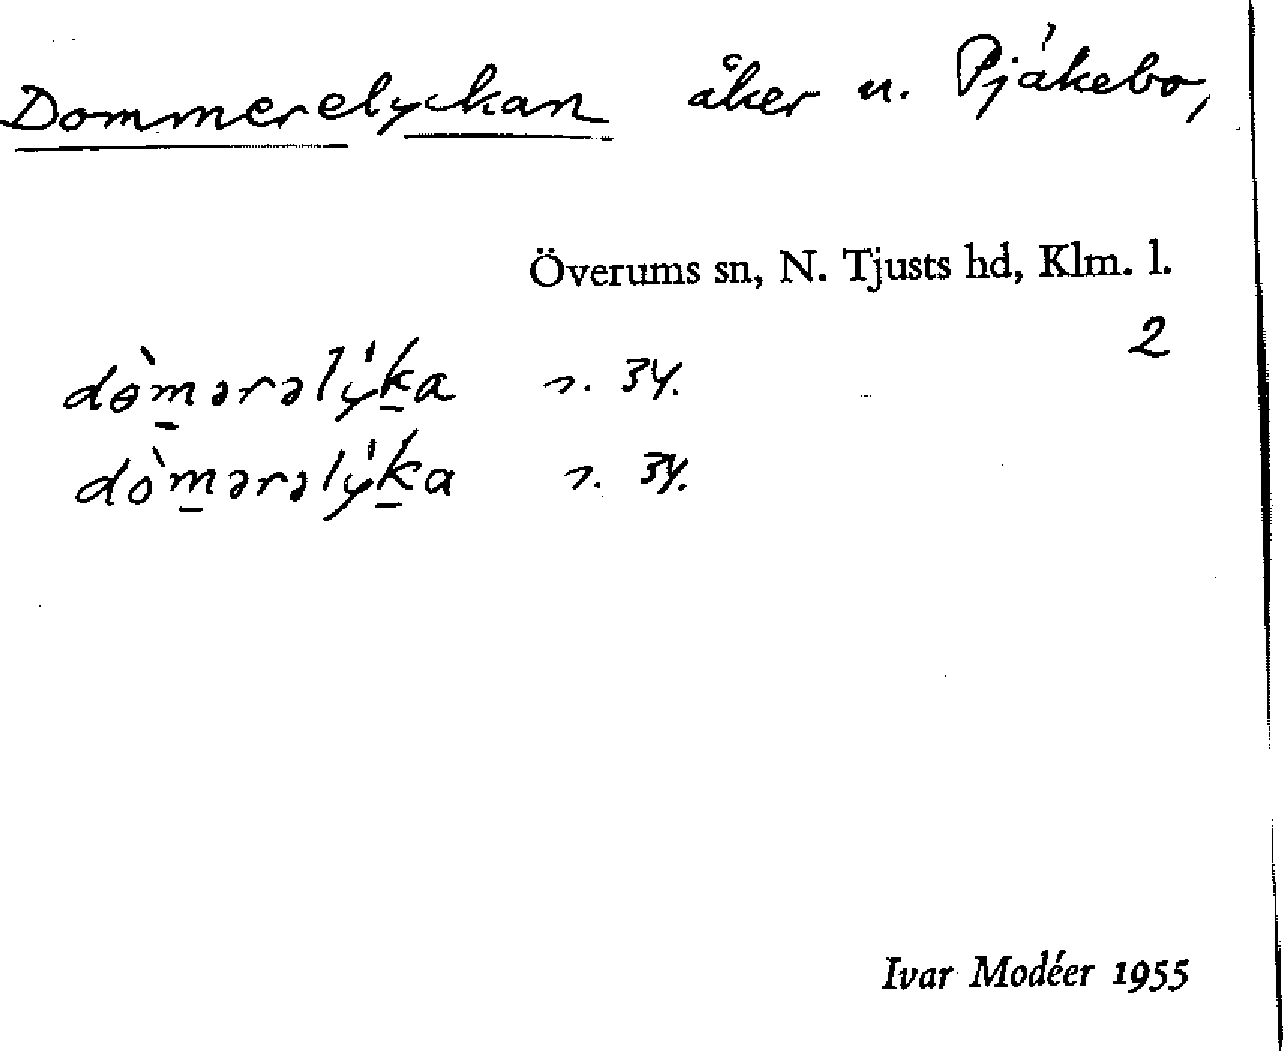 Dommerelyckan åker u. Pjäkebo,
Överums sn, N. Tjusts hd, Klm. l.
2
dɵ̀m̱ərəlýḵa n. 34.
dòm̱ərəlýḵa n. 34.
Ivar Modéer 1955